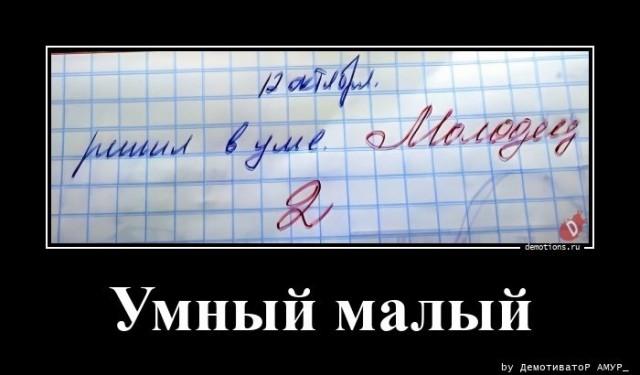 12 октября.
решил в уме. Молодец
2
D
demotions.ru
Умный малый
by ДемотиваtoP АМУР_